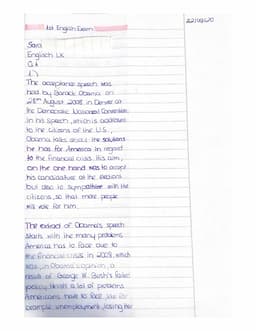 1st English Exam
22/09/20
Sara
English LK
Q1
1)
The acceptance speech was
held by Barack Obama on
28th August 2008 in Denver at
the Democratic National Convention.
In his speech, which is addressed
to the citizens of the U.S.,
Obama talks about the solutions
he has for America in regard
to the financial crisis. His aim,
on the one hand was to accept
his candidature at the elections
but also to sympathise with the
citizens, so that more people
will vote for him.
The extract of Obama's speech
starts with the many problems
America has to face due to
the financial crisis in 2008, which
was, in Obama's opinion, a
result of George W. Bush's failed
policy. There's a lot of problems
Americans have to face like for
example unemployment, losing their